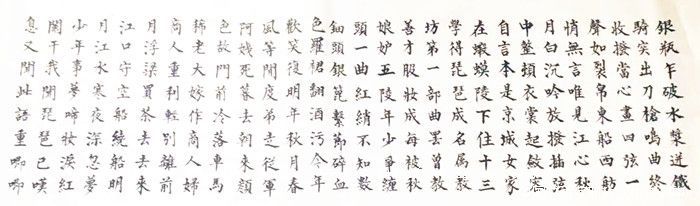 銀瓶乍破水漿迸鐵
騎突出刀槍鳴曲終
收撥當心畫四弦一
聲如裂帛東船西舫
悄無言唯見江心秋
月白沉吟放撥插弦
中整頓衣裳起斂容
自言本是京城女家
在蝦蟆陵下住十三
學得琵琶成名屬教
坊第一部曲罷曾教
善才服妝成每被秋
娘妒五陵年少爭纏
頭一曲紅綃不知數
鈿頭銀篦擊節碎血
色羅裙翻酒污今年
歡笑復明年秋月春
風等閒度弟走從軍
阿姨死暮去朝來顏
色故門前冷落車馬
稀老大嫁作商人婦
商人重利輕別離前
月浮梁買茶去去來
江口守空船繞船明
月江水寒夜深忽夢
少年事夢啼妝淚紅
闌干我聞琵琶已嘆
息又聞此語重唧唧